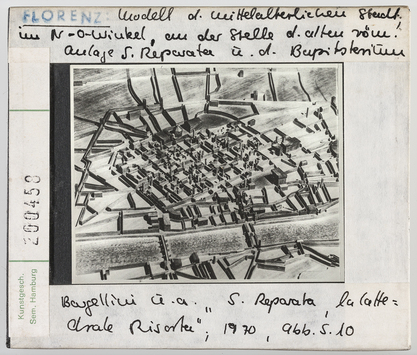 FLORENZ: Modell d. mittelalterlichen Stadt.
im N-O-Winkel, an der Stelle d. alten röm.
Anlage S. Reparata u. d. Baptisterium
200450
Kunstgesch.
Sem. Hamburg
Bargellini u.a. „S. Reparata, la catte=
drale Risorta"; 1970, Abb. S. 10